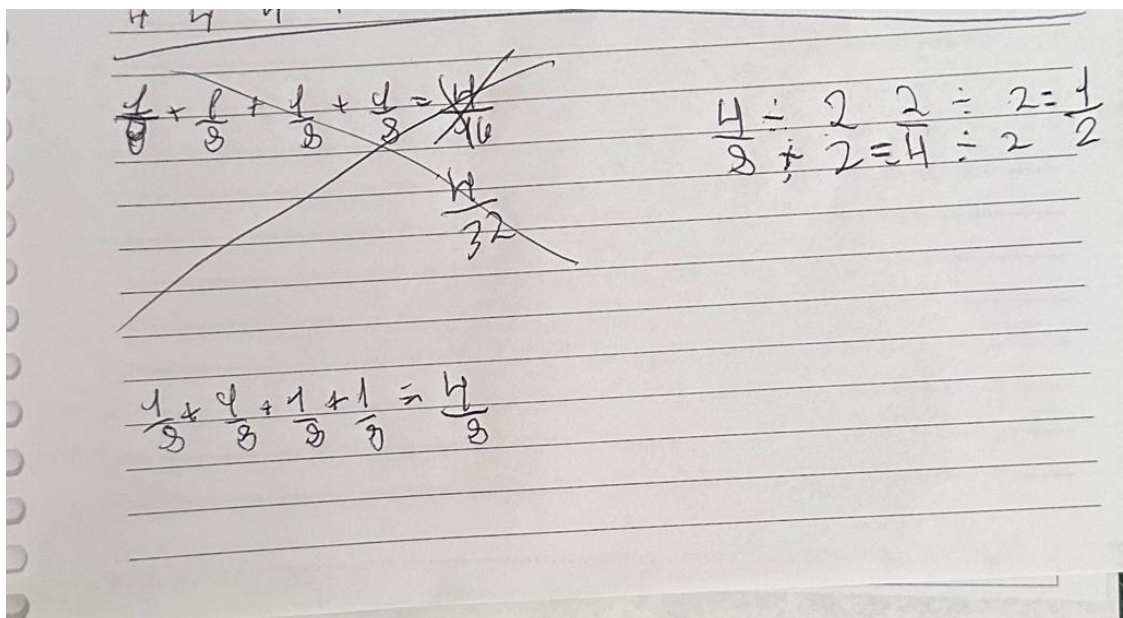 1/8 + 1/8 + 1/8 + 1/8 = 4/16
4/32
4/8 ÷ 2/2 = 2/4 ÷ 2/2 = 1/2
1/8 + 1/8 + 1/8 + 1/8 = 4/8